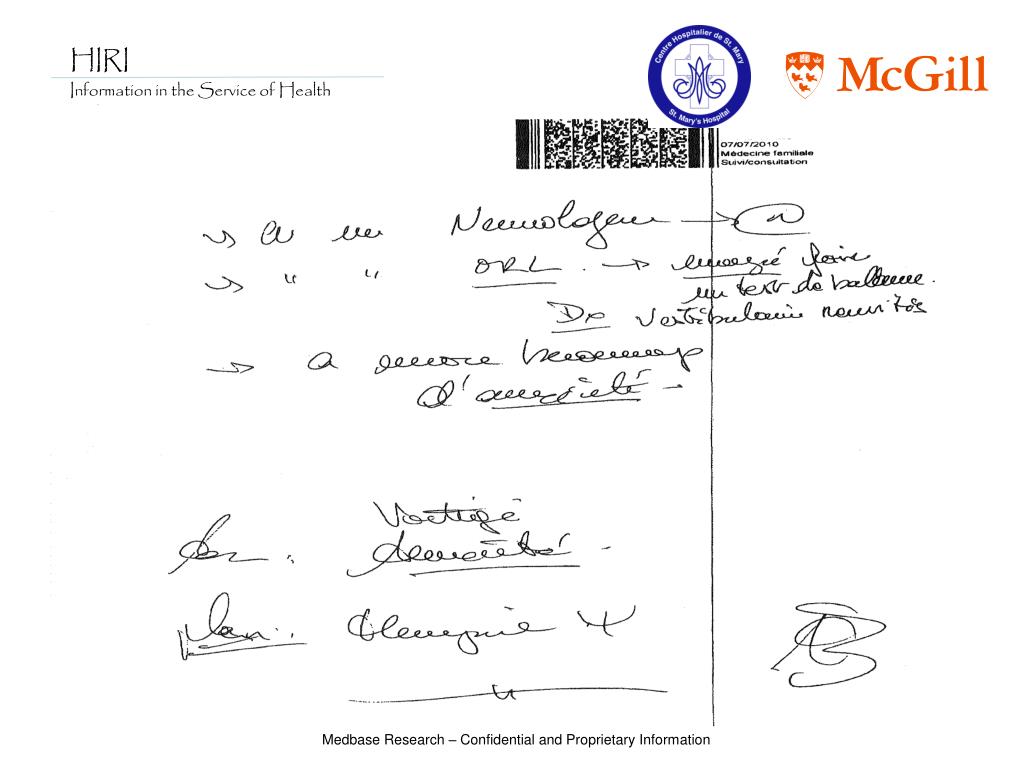 HIRI
Information in the Service of Health
Centre Hospitalier de St. Mary
St. Mary's Hospital
McGill
07/07/2010
Médecine familiale
Suivi/consultation
Neurologue → N
" " ORL. → faire
un test de balance.
Dx vestibulaire neuritis
→ a encore beaucoup
d'anxiété -
Vertige
Anxiété -
Plan:
Medbase Research – Confidential and Proprietary Information